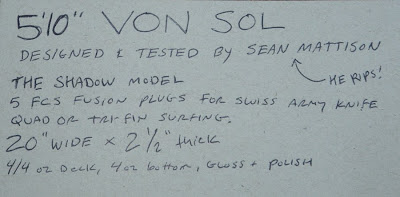 5'10" VON SOL
DESIGNED & TESTED BY SEAN MATTISON
HE RIPS!
THE SHADOW MODEL
5 FCS FUSION PLUGS FOR SWISS ARMY KNIFE
QUAD OR TRI-FIN SURFING.
20" WIDE x 2 1/2" thick
4/4 oz Deck, 4oz bottom, Gloss + POLISH